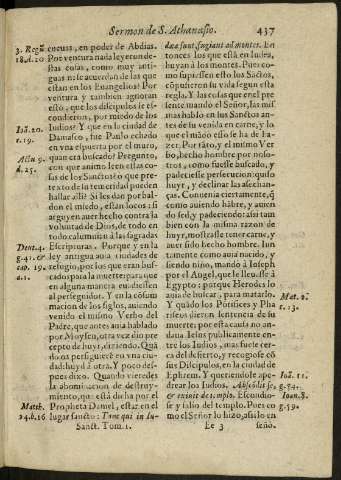 Sermon de S. Athanasio. 437
3. Reg.
18. A. 20
Ioã. 20.
v. 19.
Actu. 9.
d. 25.
Deut. 4.
g. 41. &
cap. 19.
a. 1.
Matth.
24. b. 16
cueua, en poder de Abdias.
Por ventura nada leyeron de-
stas cosas, como muy anti-
guas: ni se acuerdan de las que
estan en los Euangelios? Por
ventura y tambien ignoran
esto, que los dicipulos se es-
condieron, por miedo de los
Iudios? Y que en la ciudad de
Damasco, fue Paulo echado
en vna espuerta por el muro,
quan era buscado? Pregunto,
con que animo leen estas co-
sas de los Sanctos? o que pre-
texto de su temeridad pueden
hallar alli? Si les dan por bal-
don el miedo, estan locos: si
arguyen auer hecho contra la
voluntad de Dios, de todo en
todo calumnian a las sagradas
Escripturas. Porque y en la
ley antigua auia ciudades de
refugio, por los que eran bus-
cados para la muerte: para que
en alguna manera euadiessen
al perseguidor. Y en la cõsum
macion de los siglos, auiendo
venido el mismo Verbo del
Padre, que antes auia hablado
por Moysen, otra vez dio pre
cepto de huyr, diziendo. Quã
do os persiguieré en vna ciu-
dad huyd à otra. Y poco des-
pues dixo. Quando vieredes
la abominacion de destruy-
miento, que està dicha por el
Propheta Daniel, estar en el
lugar sancto: Tunc qui in Iu-
Sanct. Tom. 1.
dæa sunt, fugiant ad montes. En
tonces los que està en Iudea,
huyan à los montes. Pues co-
mo supiessen esto los Sãctos,
cõpusieron su vida segun esta
regla. Y las cosas que en el pre
sente mando el Señor, las mis
mas hablo en sus Sanctos an-
tes de su venida en carne, y lo
que el mãdo esso se ha de ha-
zer. Por tãto, y el mismo Ver
bo, hecho hombre por noso-
tros, como fuesse buscado, y
padeciesse persecucion: quiso
huyr, y declinar las asechan-
ças. Conuenia ciertamente, q̃
como auiendo hãbre, y auien
do sed, y padeciendo: assi tam
bien con la misma razon de
huyr, mostrasse tener carne, y
auer sido hecho hombre. Iun
tamente como auia nacido, y
siendo niño, mando à Ioseph
por el Angel, que le lleuasse à
Egipto: porque Herodes lo
auia de buscar, para matarlo.
Y quãdo los Põtifices y Pha
riseos dieron sentencia de su
muerte: por esta causa no an-
daua Iesus publicamente en-
tre los Iudios, mas fuese cer-
ca del desierto, y recogiose cõ
sus Discipulos, en la ciudad de
Ephrem. Y queriendole ape-
drear los Iudios. Abscõdit se,
& exiuit de templo. Escondio-
se y salio del templo. Pues co
mo el Señor lo hizo, assi lo en
Ee 3 seño.
Mat. 2.
v. 13.
Ioã. 11.
g. 54.
Ioan. 8.
g. 59.